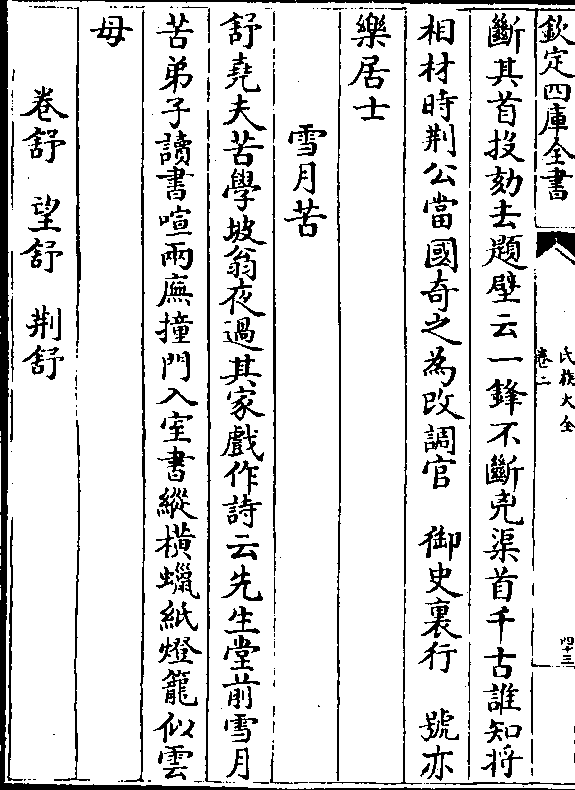 欽定四庫全書
氏族大全
卷二
四十三
斷其首投劾去題壁云一鋒不斷兇渠首千古誰知將
相材時荆公當國奇之為改調官　御史裏行　號亦
樂居士
雪月苦
舒堯夫苦學坡翁夜過其家戲作詩云先生堂前雪月
苦弟子讀書喧兩廡撞門入室書縱橫蠟紙燈籠似雲
母
卷舒　望舒　荆舒